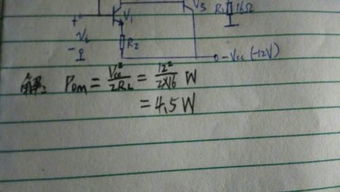 V₁ V₅ R_L 16Ω
+
V_i R₂
- -V_cc (-12V)
解: P_om = V_cc²/2R_L = 12²/2×16 W
= 4.5 W